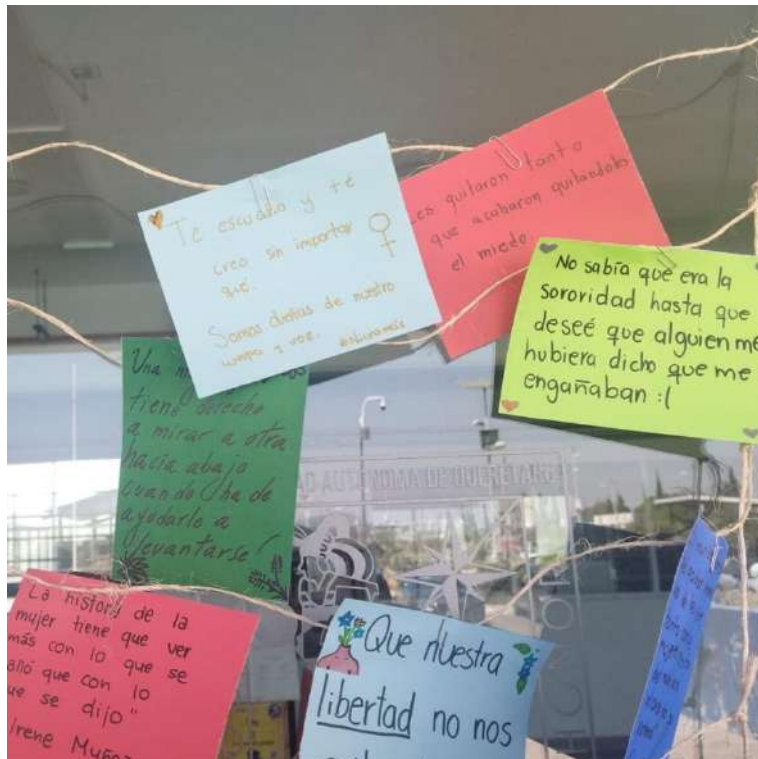 Te escucho y te
creo sin importar
qué.
Somos dueñas de nuestro
cuerpo y voz.
Les quitaron tanto
que acabaron quitándole
el miedo
No sabía que era la
sororidad hasta que
deseé que alguien me
hubiera dicho que me
engañaban :(
Una
tiene derecho
a mirar a otra
hacia abajo
cuando ha de
ayudarle a
levantarse
AUTÓNOMA DE QUERÉTARO
La historia de la
mujer tiene que ver
más con lo que se
que con lo
que se dijo"
Irene
Que nuestra
libertad no nos